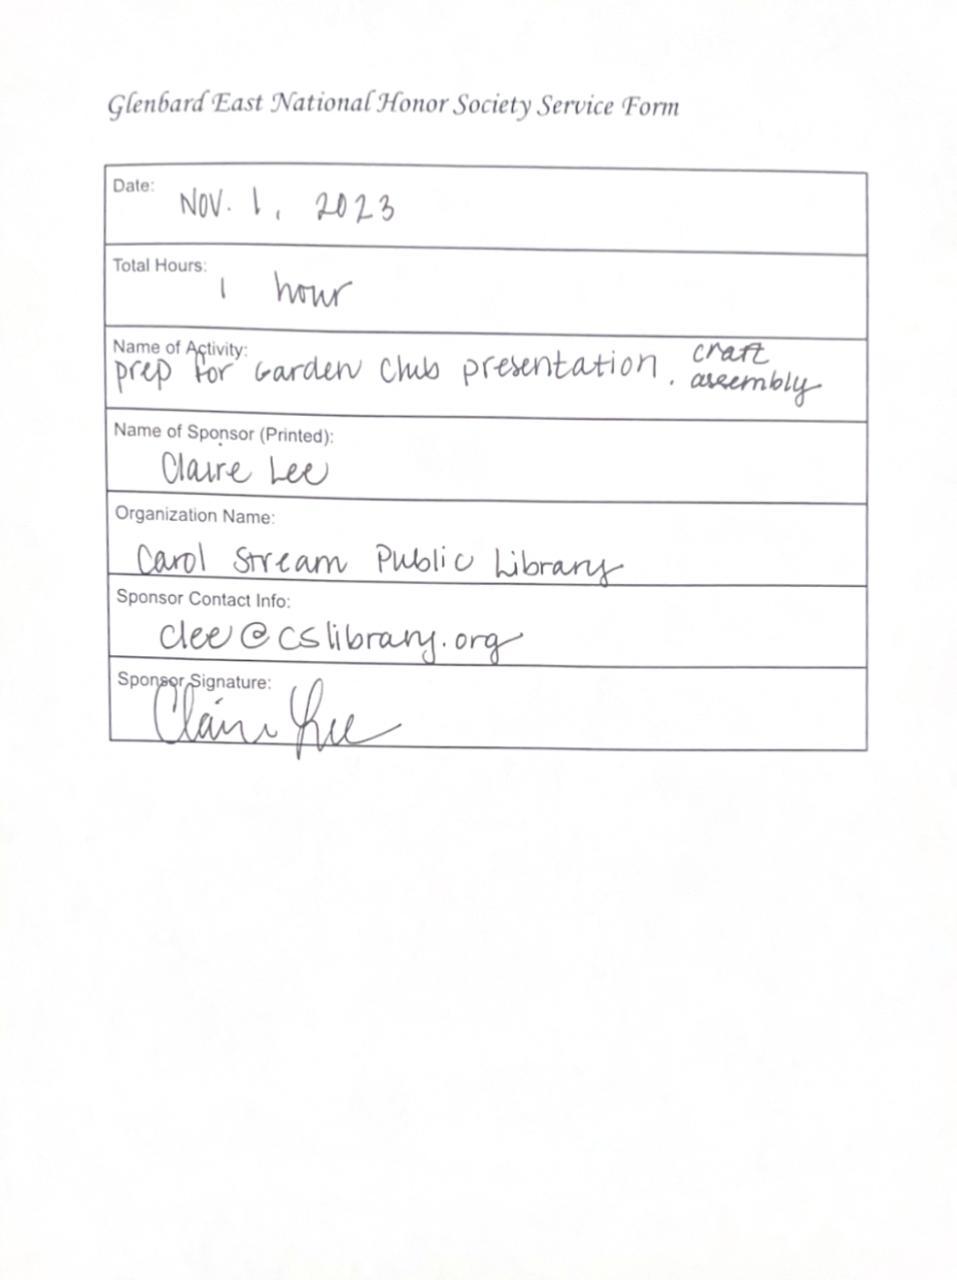 Glenbard East National Honor Society Service Form
Date: Nov. 1, 2023
Total Hours: 1 hour
Name of Activity:
prep for Garden Club presentation, craft assembly
Name of Sponsor (Printed):
Claire Lee
Organization Name:
Carol Stream Public Library
Sponsor Contact Info:
clee@cslibrary.org
Sponsor Signature:
Claire Lee